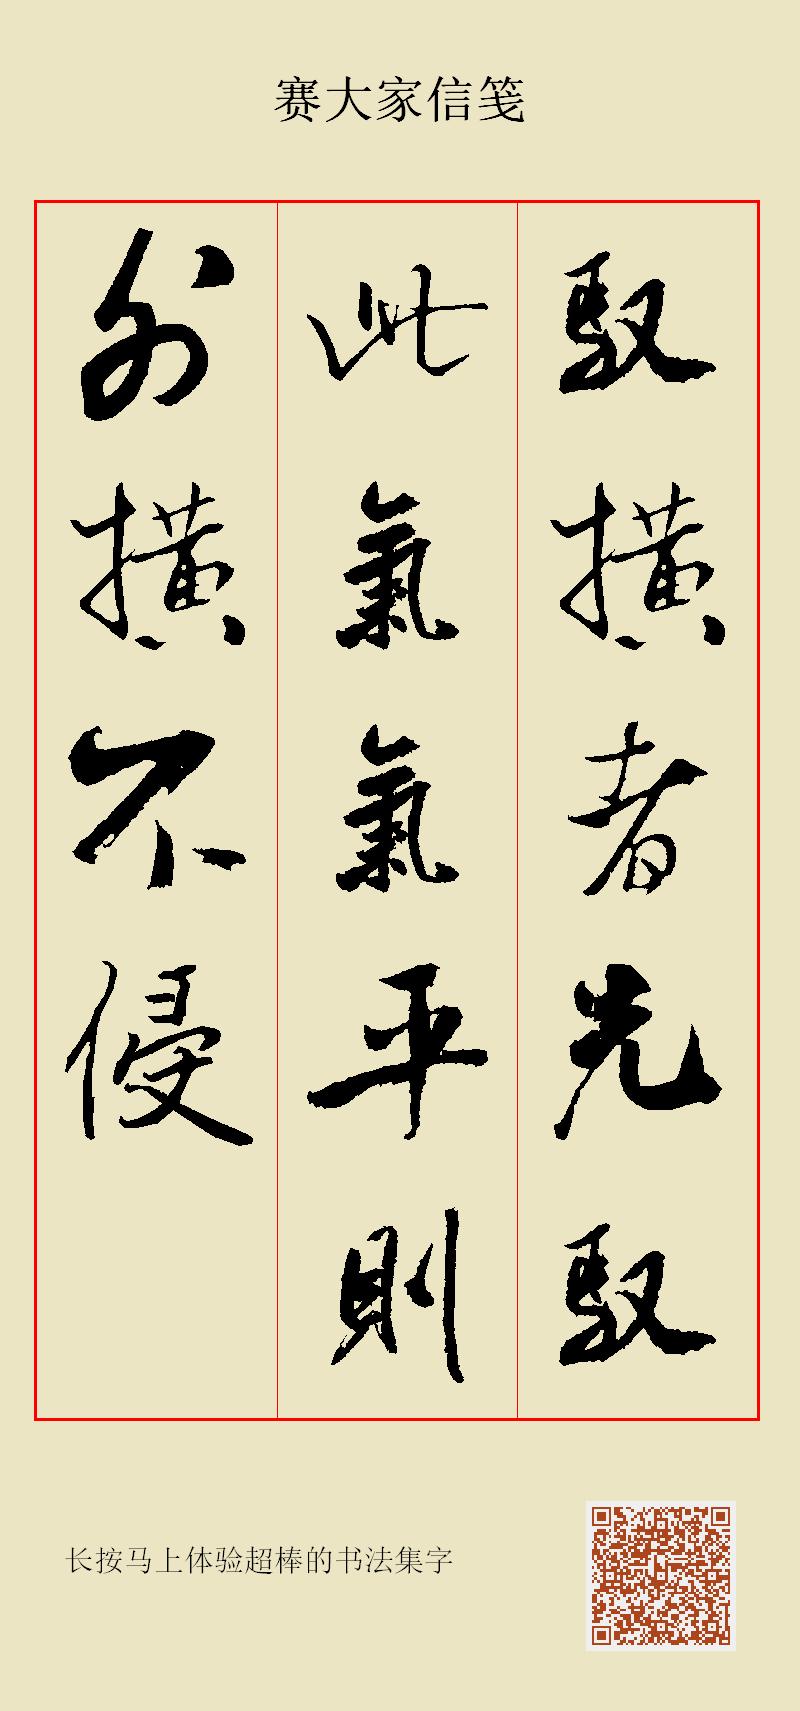 赛大家信笺
驭横者先驭
此氣氣平則
外横不侵
长按马上体验超棒的书法集字